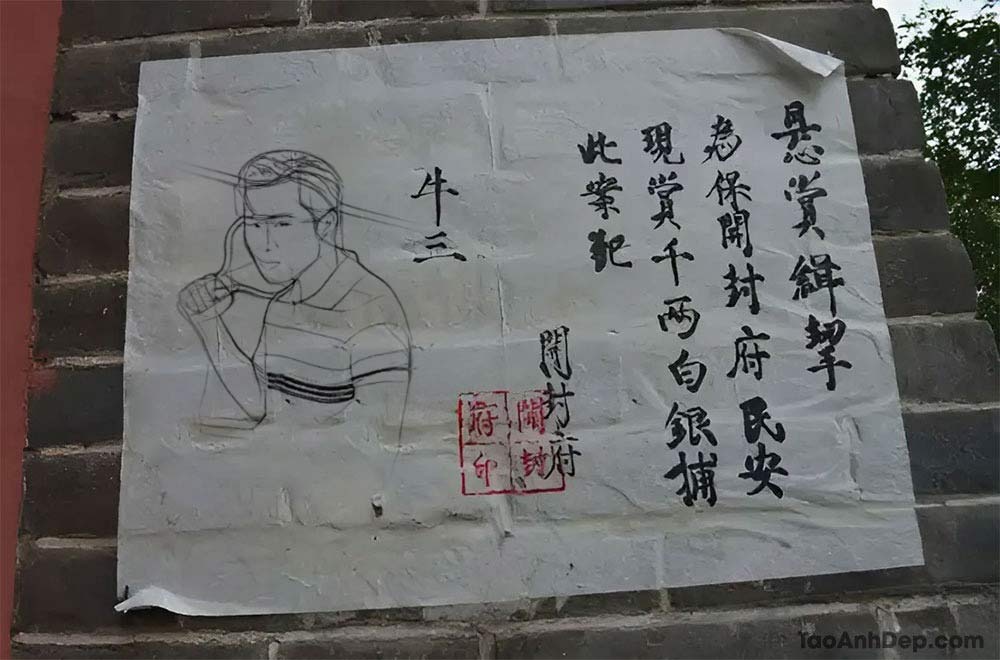 悬賞緝挈
為保開封府民安
現賞千两白銀捕
此案犯
開封府
開封
府印
牛三
TaoAnhDep.com